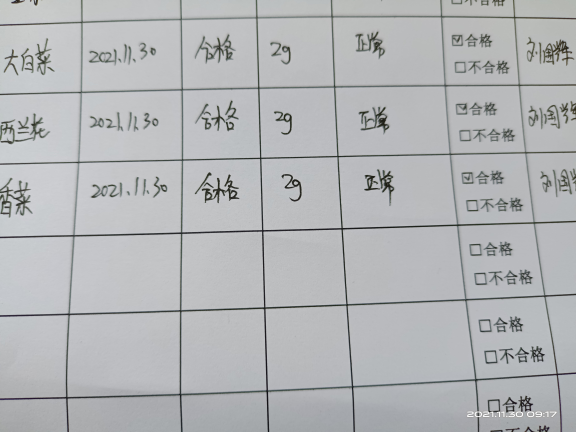 大白菜 2021.11.30 合格 2g 正常 ☑合格 刘国辉
□不合格
西兰花 2021.11.30 合格 2g 正常 ☑合格 刘国辉
□不合格
香菜 2021.11.30 合格 2g 正常 ☑合格 刘国辉
□不合格
□合格
□不合格
□合格
□不合格
□合格
2021.11.30 09:17